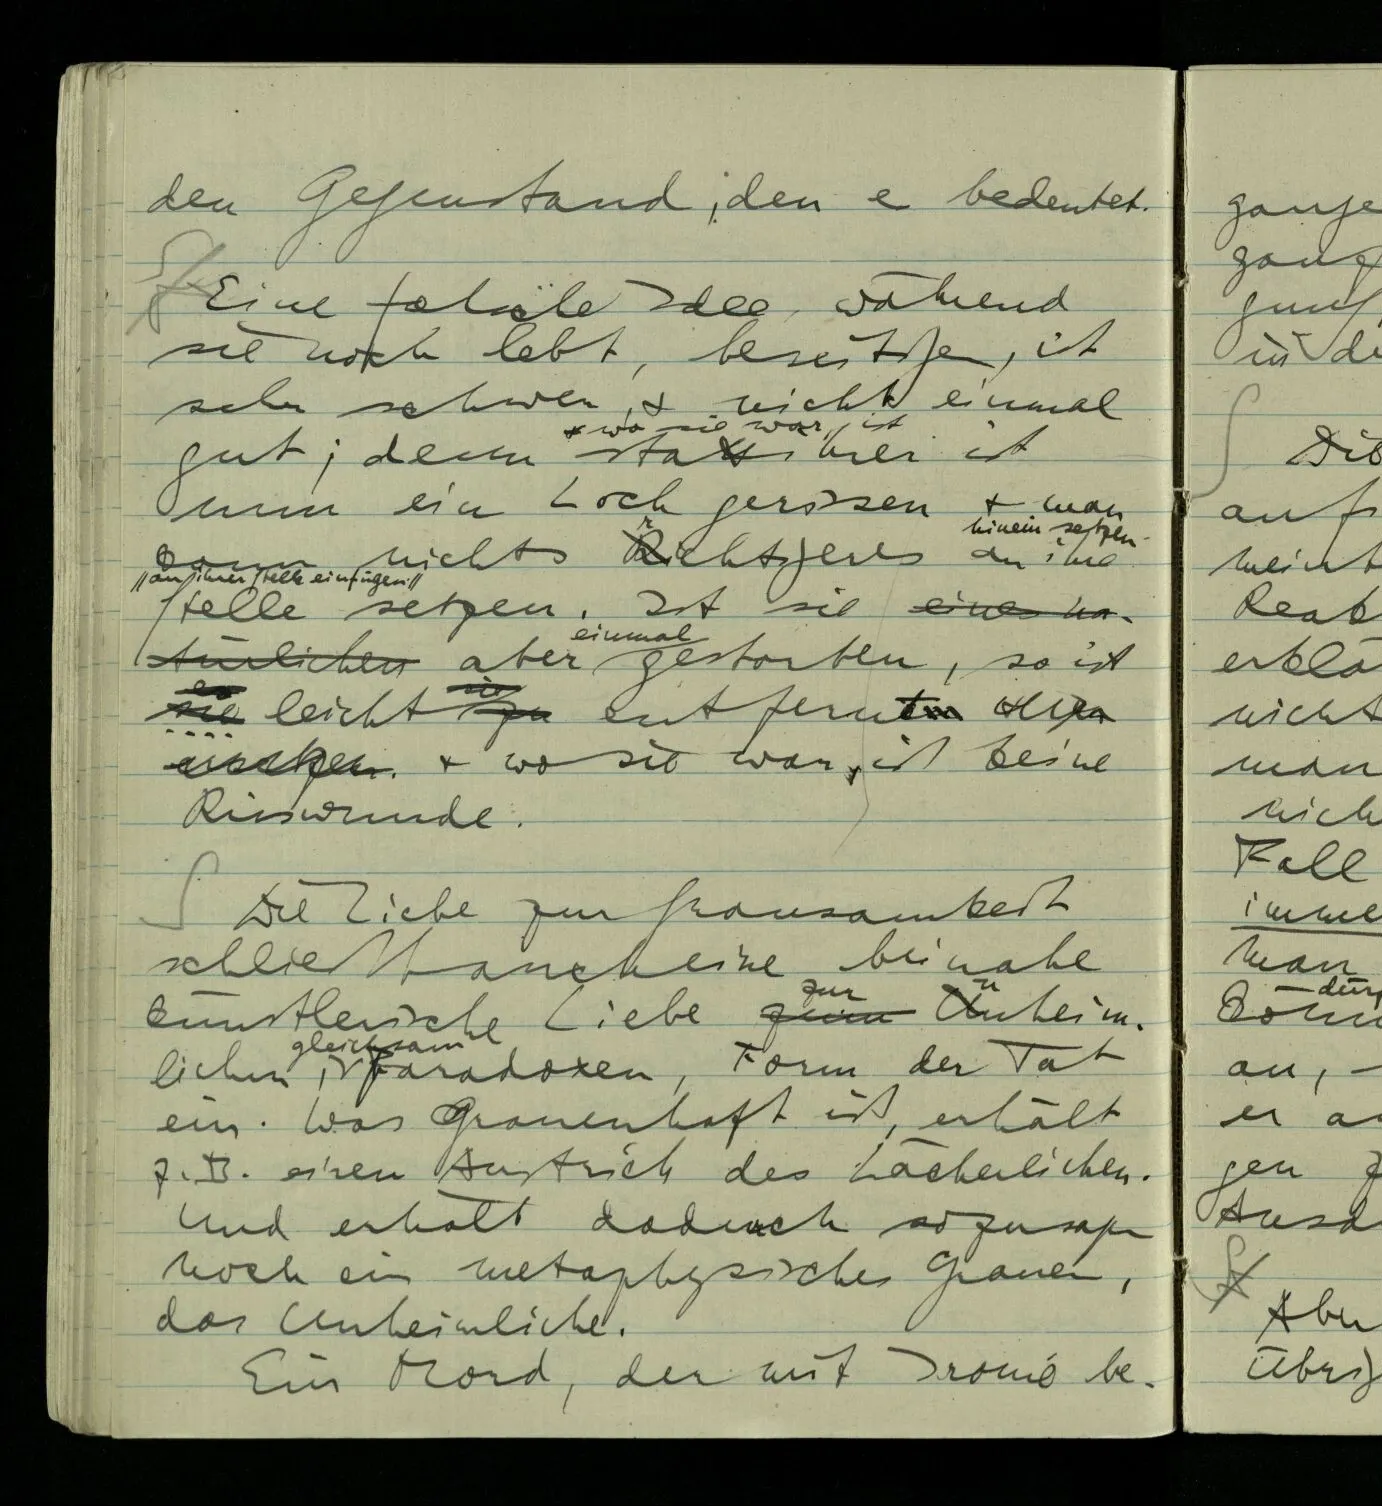 den Gegenstand, den er bedeutet.
Eine falsche Idee, während
sie noch lebt, beseitigen, ist
sehr schwer, & nicht einmal
& wo sie war, ist
gut; denn statt ihrer ist
nun ein Loch gerissen & man
hinein setzen
kann nichts Richtigeres an ihre
"an ihrer Stelle einfügen"
Stelle setzen. Ist sie eines na-
türlichen aber gestorben, so ist
einmal
es sie
sie leicht zu entfernen
& wo sie war, ist keine
Risswunde.
Die Liebe zur Grausamkeit
schließt auch eine beinahe
zur
künstlerische Liebe zum Unheim-
gleichsam
lichen, paradoxen, Form der Tat
ein. Was grauenhaft ist, erhält
z.B. einen Anstrich des Lächerlichen.
Und erhält dadurch sozusagen
noch ein metaphysisches Grauen,
das Unheimliche.
Ein Mord, der mit Ironie be-
ganze
in di
Die
auf
meint
Reak
erklä
nicht
man
nich
Fall
imme
man
an, -
er a
gen z
Aber
übrig